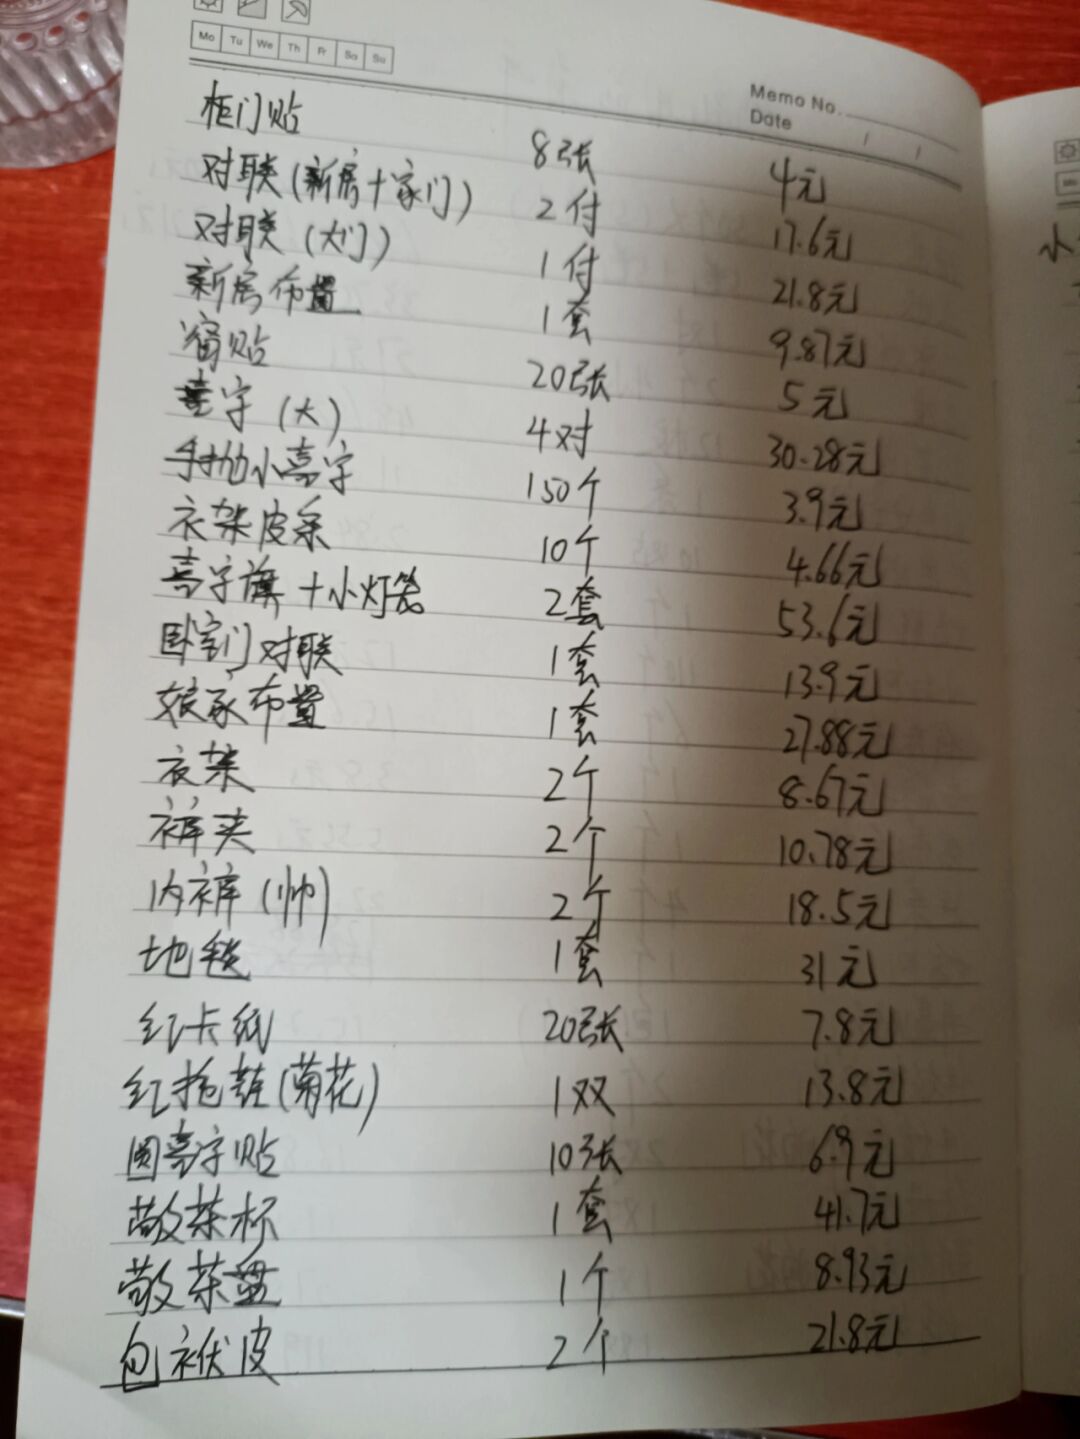 Mo Tu We Th Fr Sa Su
Memo No.
Date / /
柜门贴 8张 4元
对联(新房+家门) 2付 17.6元
对联(大门) 1付 21.8元
新房布置 1套 9.87元
窗贴 20张 5元
喜字(大) 4对 30.28元
手抛小喜字 150个 3.9元
衣架皮条 10个 4.66元
喜字旗+小灯笼 2套 53.6元
卧室门对联 1套 13.9元
娘家布置 1套 27.88元
衣架 2个 8.67元
裤夹 2个 10.78元
内裤(帅) 2个 18.5元
地毯 1套 31元
红卡纸 20张 7.8元
红拖鞋(菊花) 1双 13.8元
圆喜字贴 10张 6.9元
敬茶杯 1套 41.7元
敬茶盘 1个 8.93元
包袱皮 2个 21.8元
小